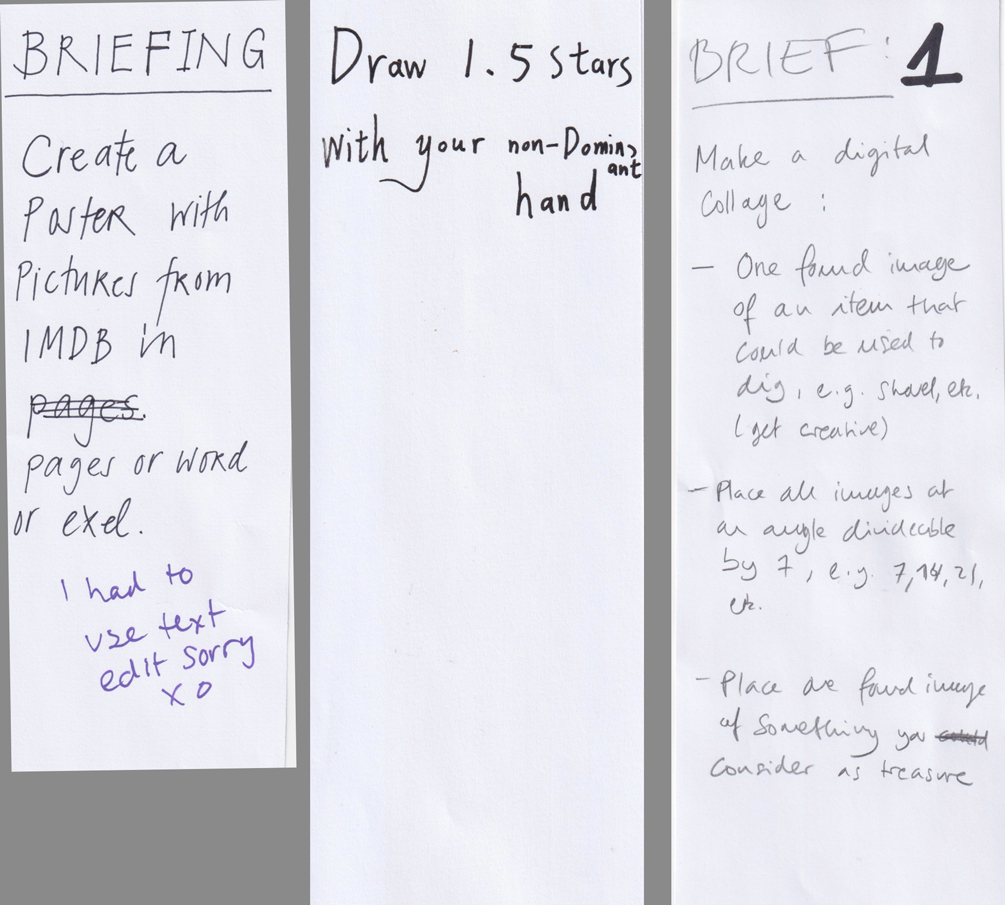 BRIEFING
Create a
Poster with
Pictures from
IMDB in
pages.
pages or word
or exel.
I had to
use text
edit sorry
xo
Draw 1.5 stars
with your non-Domin
ant
hand
BRIEF: 1
Make a digital
Collage :
— One found image
of an item that
could be used to
dig, e.g. shovel, etc.
(get creative)
— Place all images at
an angle divideable
by 7, e.g. 7, 14, 21,
etc.
— Place one found image
of something you could
consider as treasure